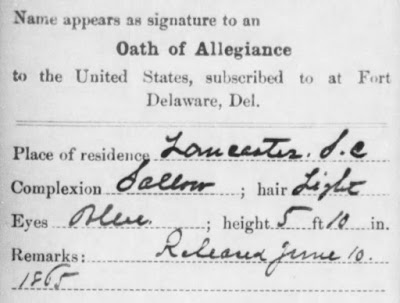 Name appears as signature to an
Oath of Allegiance
to the United States, subscribed to at Fort
Delaware, Del.
Place of residence Lancaster. S. C
Complexion Sallow ; hair Light
Eyes Blue. ; height 5 ft 10 in.
Remarks: Released June 10.
1865